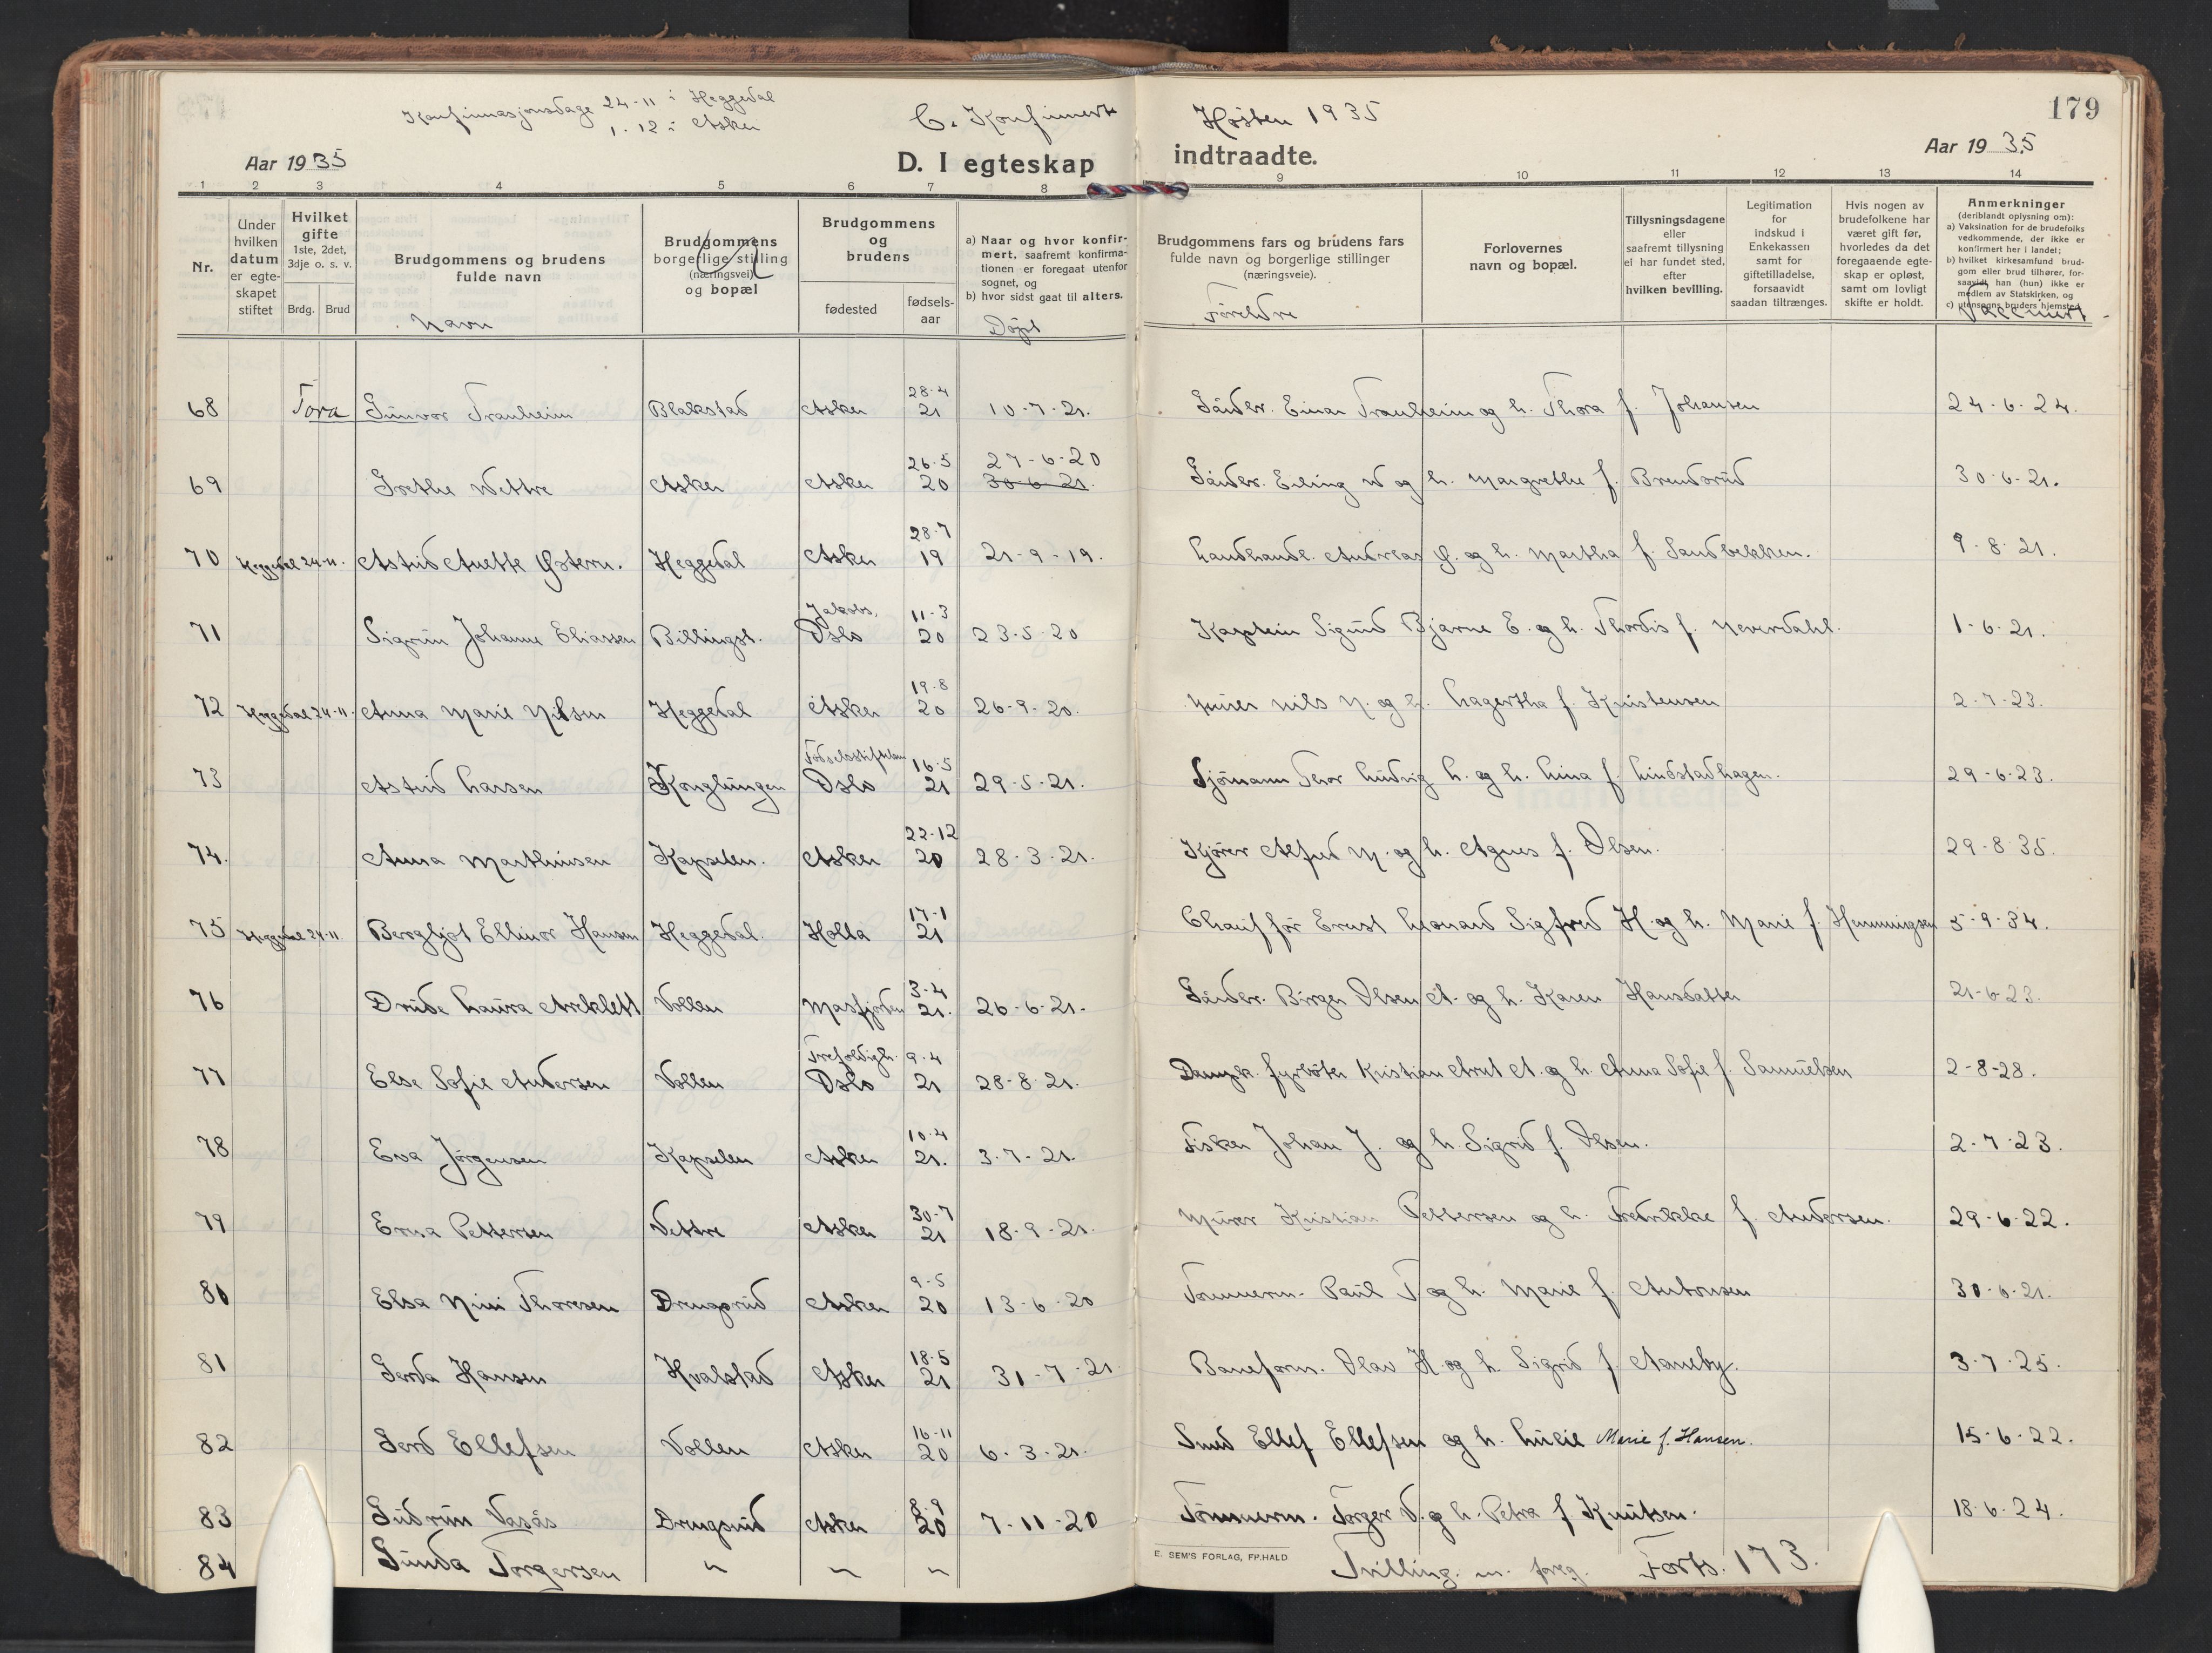 Konfirmasjonsdage 24-11 i Heggedal
1.12 i Asker
C. Konfirmerte Høsten 1935
179
Aar 1935
D. I egteskap indtraadte.
Aar 1935
1 2 3 4 5 6 7 8 9 10 11 12 13 14
Nr.
Under hvilken datum er egteskapet stiftet
Hvilket gifte 1ste, 2det, 3dje o. s. v.
Brdg. Brud
Brudgommens og brudens fulde navn
Navn
Brudgommens borgerlige stilling (næringsvei) og bopæl
Brudgommens og brudens
fødested
fødselsaar
a) Naar og hvor konfirmert, saafremt konfirmationen er foregaat utenfor sognet, og
b) hvor sidst gaat til alters.
Døpt
Brudgommens fars og brudens fars fulde navn og borgerlige stillinger (næringsveie).
Foreldre
Forlovernes navn og bopæl.
Tillysningsdagene eller saafremt tillysning ei har fundet sted, efter hvilken bevilling.
Legitimation for indskud i Enkekassen samt for giftetilladelse, forsaavidt saadan tiltrænges.
Hvis nogen av brudefolkene har været gift før, hvorledes da det foregaaende egteskap er opløst, samt om lovligt skifte er holdt.
Anmerkninger
(deriblandt oplysning om):
a) Vaksination for de brudefolks vedkommende, der ikke er konfirmert her i landet;
b) hvilket kirkesamfund brudgom eller brud tilhører, forsaavidt han (hun) ikke er medlem av Statskirken, og
c) utensogns bruders hjemsted.
68 Tora Gunvor Tranheim Blakstad Asker 28-4 21 10-7-21. Gårdbr. Einar Tranheim og h. Thora f. Johansen 24-6-24.
69 Grethe Wettre Asker Asker 26-5 20 27-6-20 30-6-21. Gårdbr. Erling W og h. Margrethe f. Brendsrud 30-6-21.
70 Heggedal 24-11. Astrid Anette Østern. Heggedal Asker 28-7 19 21-9-19. Landhandl. Andreas Ø. og h. Martha f. Sandbekken. 9-8-21.
71 Sigrun Johanne Eliassen Billingst. Jakobs, Oslo 11-3 20 23-5-20 Kaptein Sigurd Bjarne E. og h. Thordis f. Neverdahl. 1-6-21.
72 Heggedal 24-11. Anna Marie Nilsen Heggedal Asker 19-8 20 26-9-20. Murer Nils N. og h. Hagertha f. Kristensen 2-7-23.
73 Astrid Larsen Konglungen Fødselsstiftelsen Oslo 16-5 21 29-5-21. Sjømann Thor Ludvig L. og h. Lina f. Lindstadhagen. 29-6-23.
74. Anna Marthinsen Kapselen. Asker 22-12 20 28-3-21. Kjører Alfred M. og h. Agnes f. Olsen. 29-8-35.
75 Heggedal 24-11 Bergljot Ellinor Hansen Heggedal. Holla 17-1 21 Chauffør Ernst Leonard Sigfred H. og h. Marie f. Hemmingsen 5-9-34.
76 Drude Laura Areklett Vollen Masfjorden 3-4 21. 26-6-21. Gårdbr. Birger Olsen A. og h. Karen Hansdatter 21-6-23.
77 Else Sofie Andersen Vollen Trefoldigh. Oslo 9-4 21 28-8-21. Dampsk. fyrbøter Kristian Arnt A. og h. Anna Sofie f. Samuelsen 2-8-28.
78 Eva Jørgensen Kapselen Asker 10-4 21. 3-7-21. Fisker Johan J. og h. Sigrid f. Olsen. 2-7-23.
79 Erna Pettersen Vettre Asker 30-7 21 18-9-21. Murer Kristian Pettersen og h. Fredrikke f. Andersen. 29-6-22.
80 Elsa Nini Thoresen Drengsrud Asker 9-5 20 13-6-20 Tømmerm. Paul T og h. Marie f. Antonsen 30-6-21.
81 Gerda Hansen Hvalstad Asker 18-5 21 31-7-21. Baneform. Olav H. og h. Sigrid f. Aaneby. 3-7-25.
82 Gerd Ellefsen Vollen Asker 16-11 20 6-3-21. Smed Ellef Ellefsen og h. Lucie Marie f. Hansen. 15-6-22.
83 Gudrun Vasås Drengsrud Asker 8-9 20 7-11-20 Tømmerm. Torger V. og h. Petra f. Knutsen. 18-6-24.
84 Gunda Torgersen " " " Tvilling m. foreg. Forts. 173.
E. SEM'S FORLAG, FR.HALD